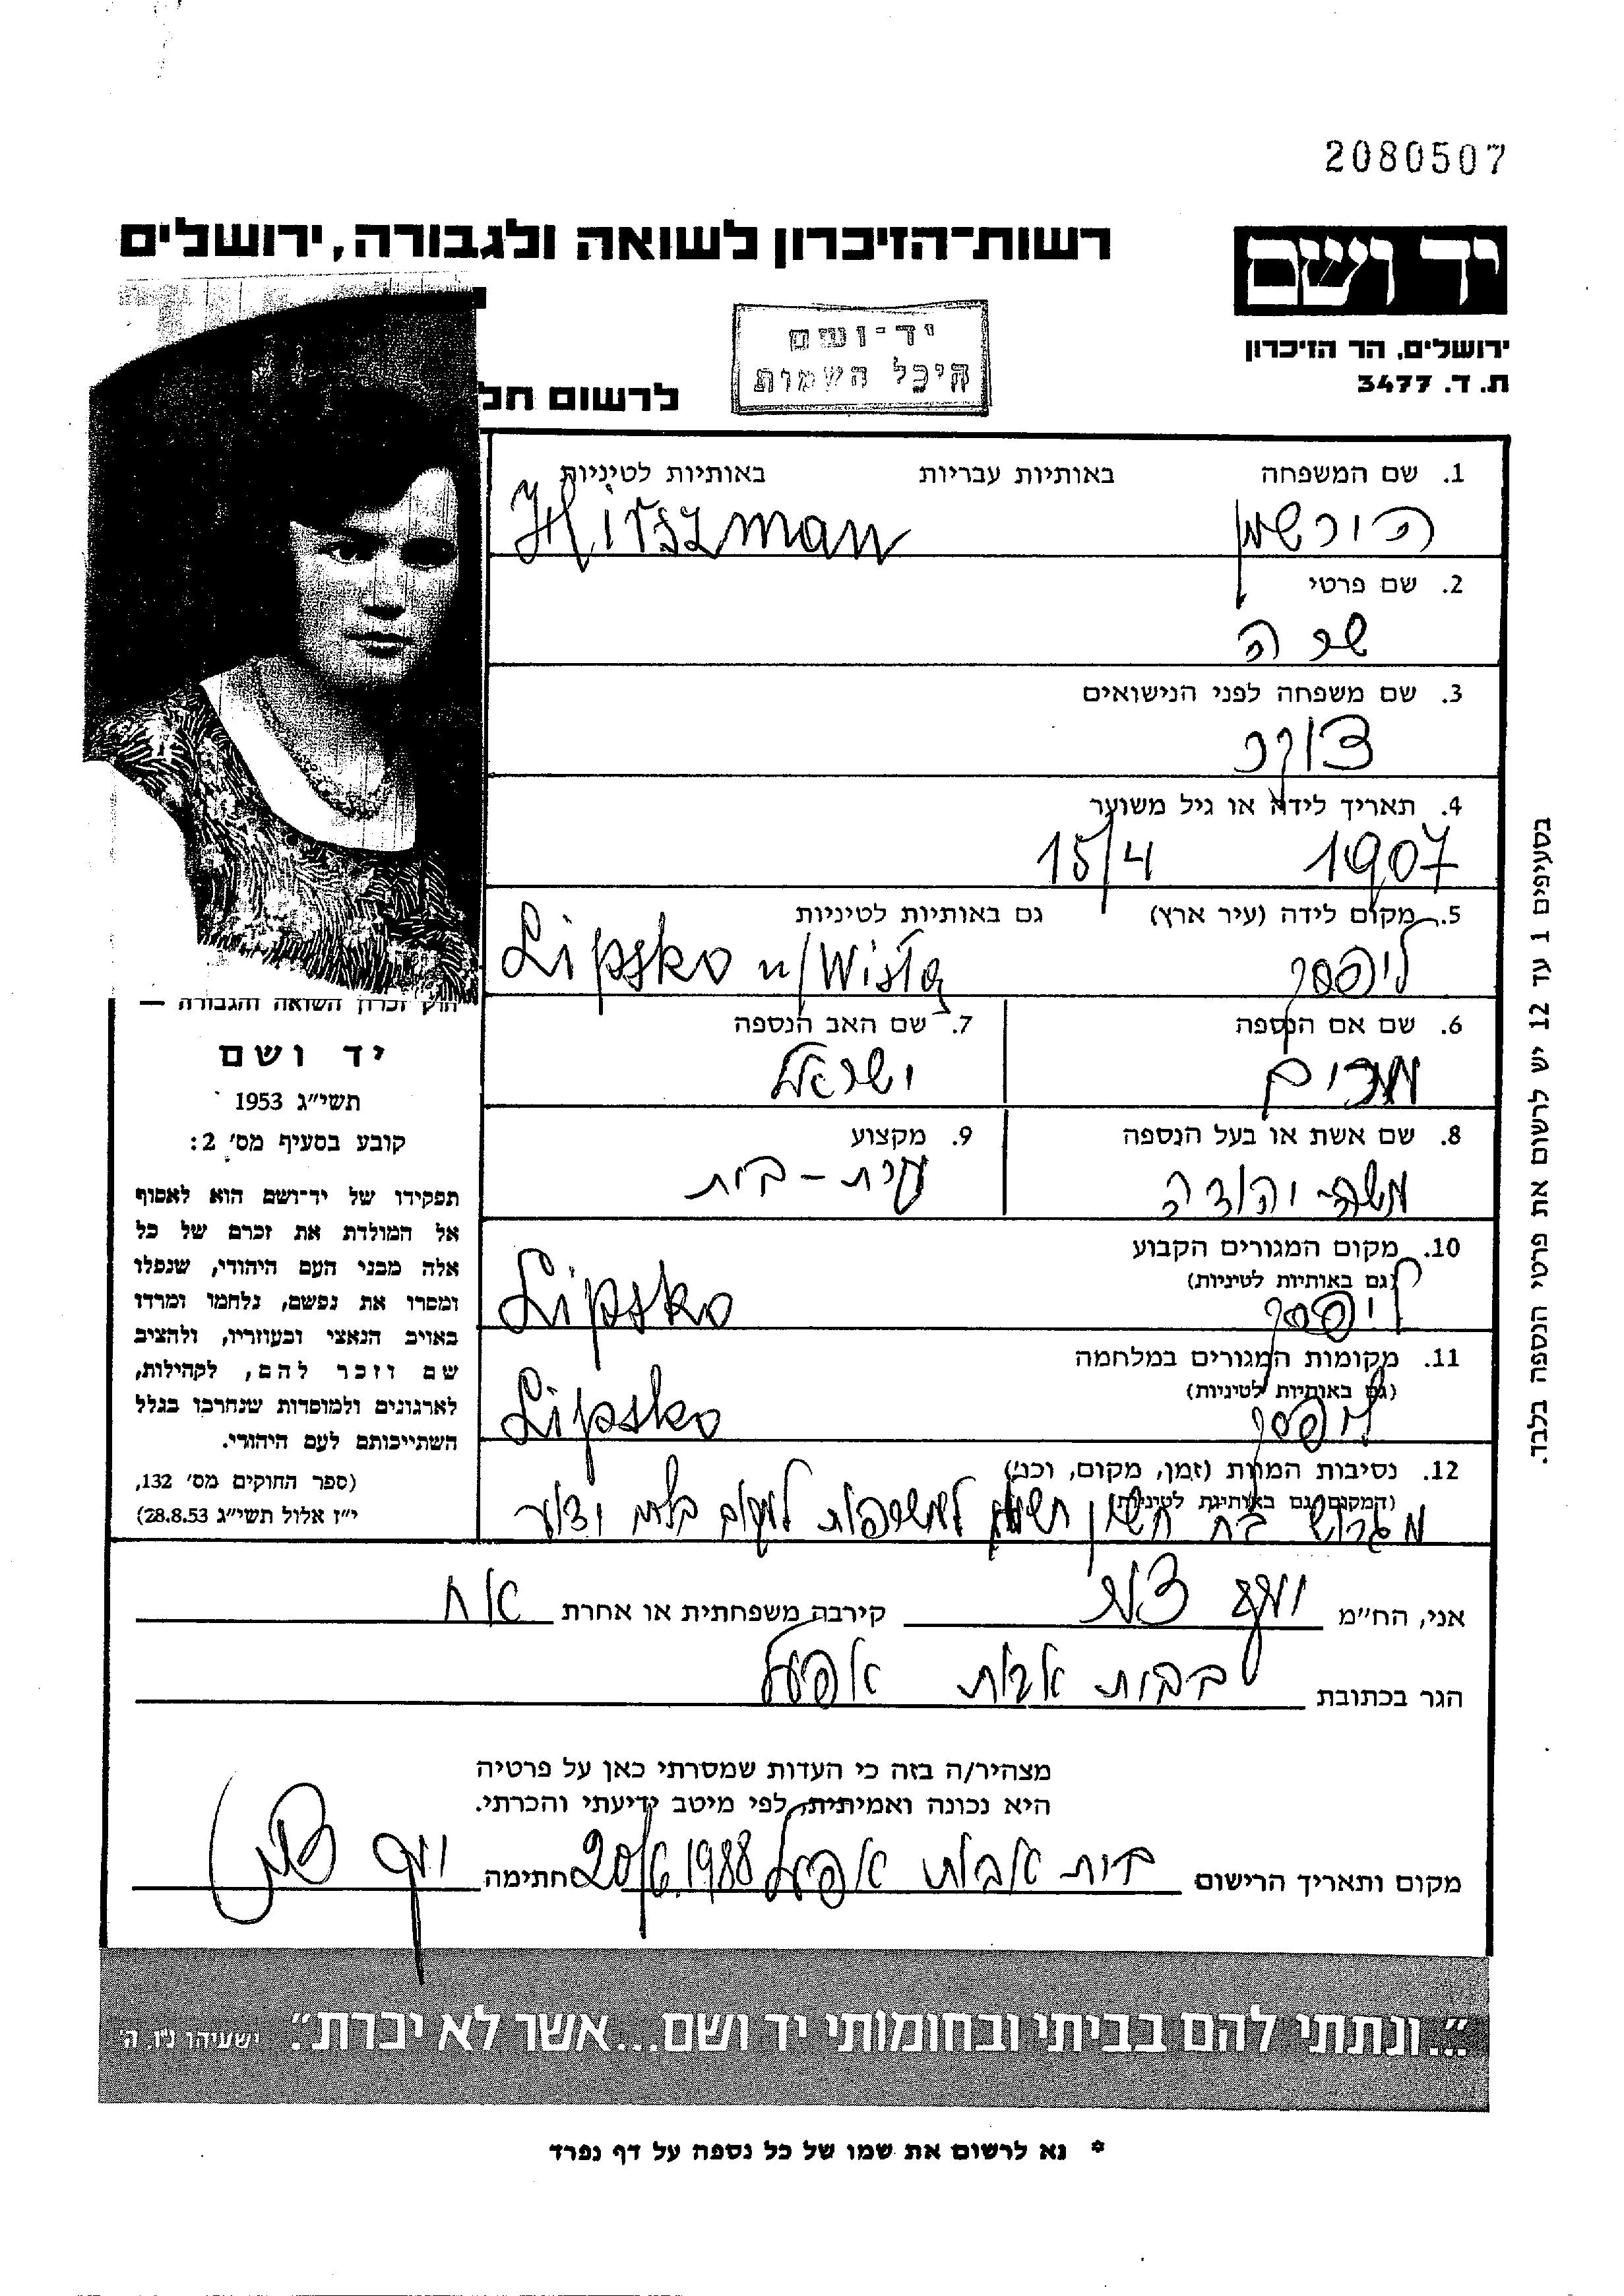 2080507
רשות־הזיכרון לשואה ולגבורה, ירושלים
יד ושם
ירושלים, הר הזיכרון
ת. ד. 3477
יד-ושם
היכל השמות
לרשום חל
1. שם המשפחה באותיות עבריות באותיות לטיניות
הירשמן Hirszman
2. שם פרטי
שרה
3. שם משפחה לפני הנישואים
4. תאריך לידה או גיל משוער
1907 15/4
5. מקום לידה (עיר ארץ) גם באותיות לטיניות
ליפסק Lipsko n/Wisłą
6. שם אם הנספה 7. שם האב הנספה
מרים ישראל
8. שם אשת או בעל הנספה 9. מקצוע
משה יהודה עקרת-בית
10. מקום המגורים הקבוע
(גם באותיות לטיניות)
ליפסק Lipsko
11. מקומות המגורים במלחמה
(גם באותיות לטיניות)
ליפסק Lipsko
12. נסיבות המוות (זמן, מקום, וכו')
(המקום גם באותיות לטיניות)
בגרוש חשון למקום בלתי ידוע
חוק זכרון השואה והגבורה —
יד ושם
תשי״ג 1953
קובע בסעיף מס׳ 2:
תפקידו של יד־ושם הוא לאסוף
אל המולדת את זכרם של כל
אלה מבני העם היהודי, שנפלו
ומסרו את נפשם, נלחמו ומרדו
באויב הנאצי ובעוזריו, ולהציב
שם וזכר להם, לקהילות,
לארגונים ולמוסדות שנחרבו בגלל
השתייכותם לעם היהודי.
(ספר החוקים מס׳ 132,
י״ז אלול תשי״ג 28.8.53)
בסעיפים 1 עד 12 יש לרשום את פרטי הנספה בלבד.
אני, הח״מ יוסף קירבה משפחתית או אחרת אח
הגר בכתובת בבית אבות אפעל
מצהיר/ה בזה כי העדות שמסרתי כאן על פרטיה
היא נכונה ואמיתית, לפי מיטב ידיעתי והכרתי.
מקום ותאריך הרישום בית אבות אפעל 20/6.1988 חתימה יוסף
״...ונתתי להם בביתי ובחומותי יד ושם...אשר לא יכרת״. ישעיהו נ״ו. ה׳
* נא לרשום את שמו של כל נספה על דף נפרד